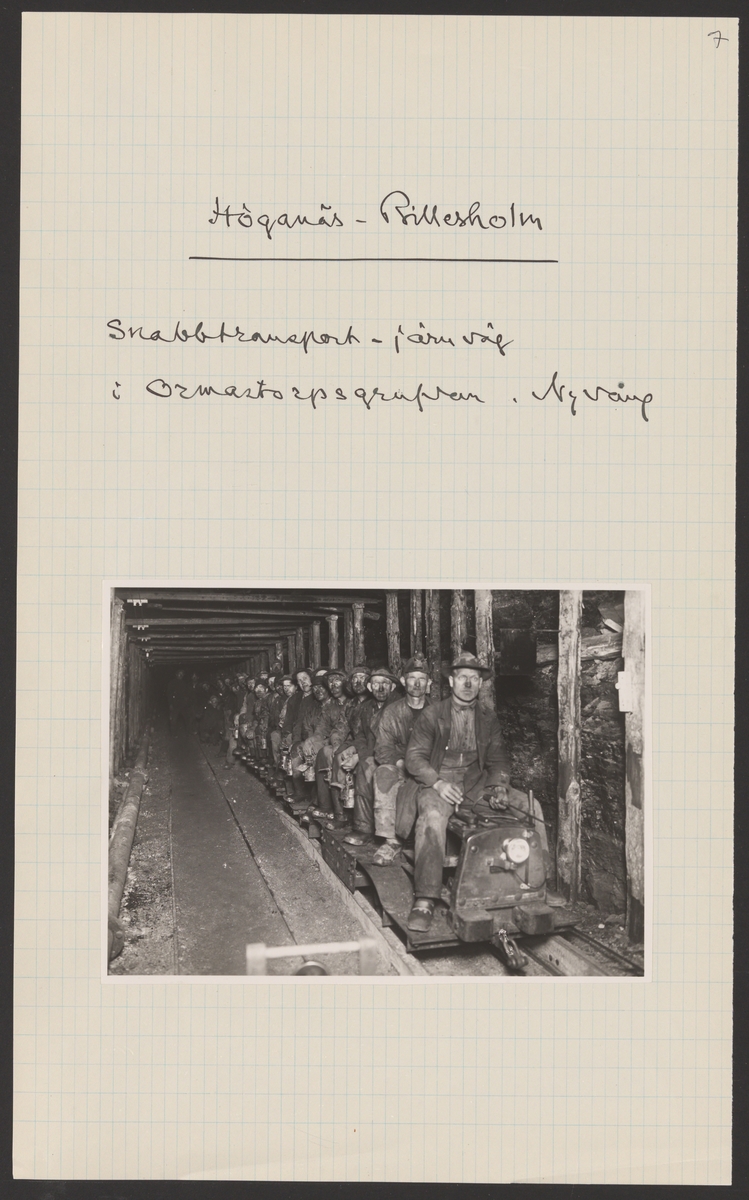 7
Höganäs - Billesholm
Snabbtransport - järnväg
i Ormastorpsgruvan . Nyvång